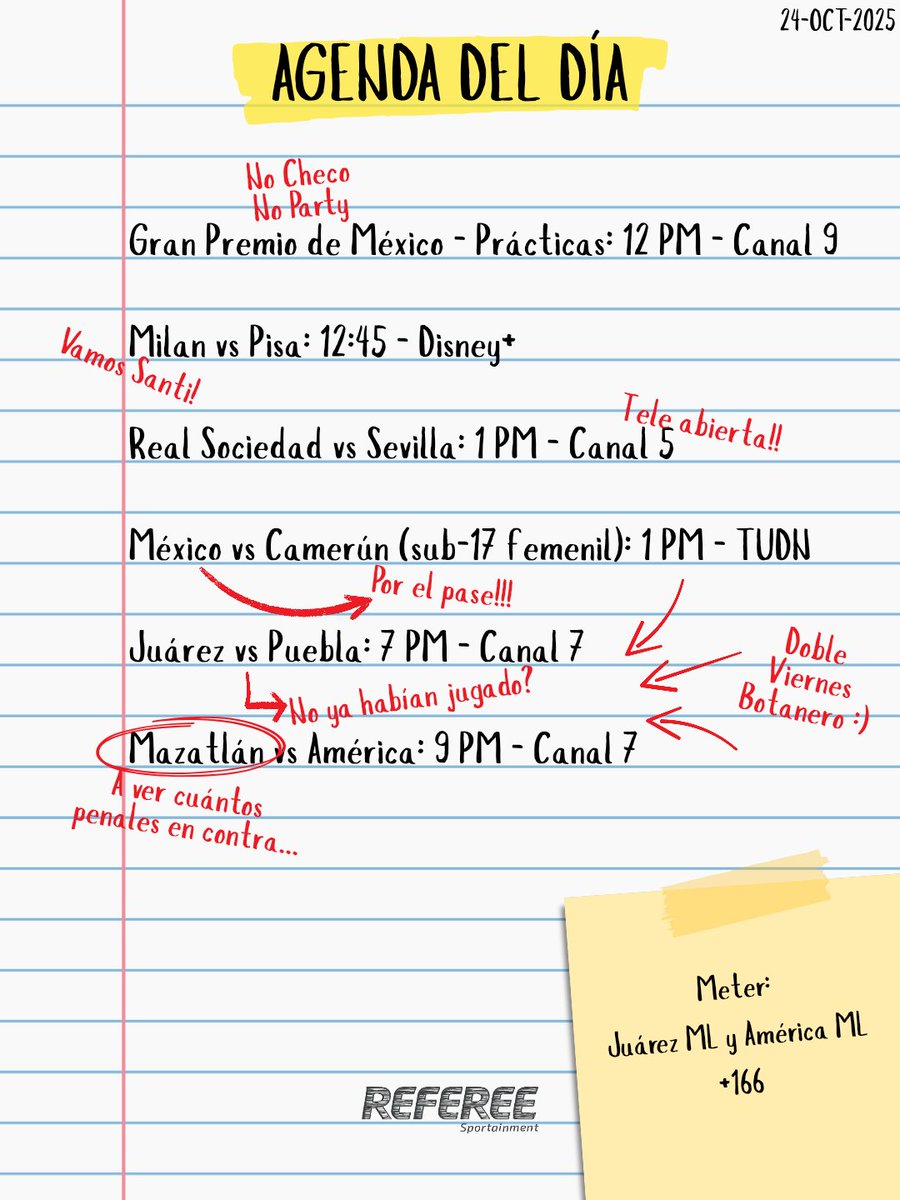 24-OCT-2025
AGENDA DEL DÍA
No Checo
No Party
Gran Premio de México - Prácticas: 12 PM - Canal 9
Milan vs Pisa: 12:45 - Disney+
Vamos Santi!
Tele abierta!!
Real Sociedad vs Sevilla: 1 PM - Canal 5
México vs Camerún (sub-17 femenil): 1 PM - TUDN
Por el pase!!!
Juárez vs Puebla: 7 PM - Canal 7
No ya habían jugado?
Doble
Viernes
Botanero :)
Mazatlán vs América: 9 PM - Canal 7
A ver cuántos
penales en contra...
Meter:
Juárez ML y América ML
+166
REFEREE
Sportainment